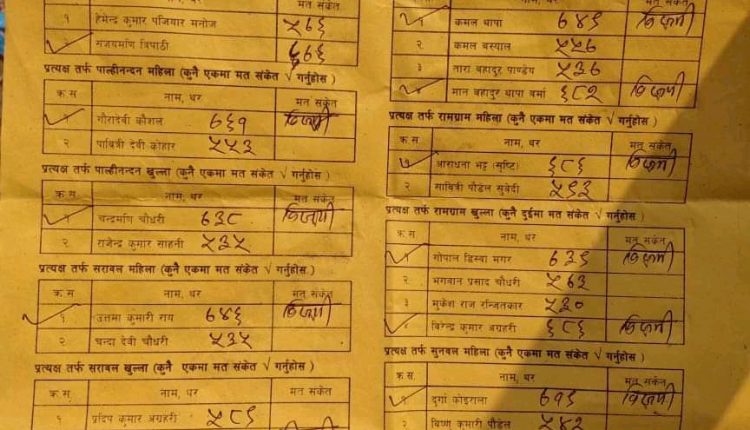 १ हेमेन्द्र कुमार पजियार मनोज ५७६
संजयमणि त्रिपाठी ६७६
प्रत्यक्ष तर्फ पाल्हीनन्दन महिला (कुनै एकमा मत संकेत √ गर्नुहोस )
क्र.स नाम, थर मत संकेत
१ गौरादेवी कौशल ६६१ विजयी
२ पावित्री देवी कोहार ५५३
प्रत्यक्ष तर्फ पाल्हीनन्दन खुल्ला (कुनै एकमा मत संकेत √ गर्नुहोस )
क्र.स नाम, थर मत संकेत
१ चन्द्रमणि चौधरी ६३८ विजयी
२ राजेन्द्र कुमार साहनी ५३५
प्रत्यक्ष तर्फ सरावल महिला (कुनै एकमा मत संकेत √ गर्नुहोस )
क्र.स नाम, थर मत संकेत
१. उत्तमा कुमारी राय ६४६ विजयी
२ चन्दा देवी चौधरी ५३५
प्रत्यक्ष तर्फ सरावल खुल्ला (कुनै एकमा मत संकेत √ गर्नुहोस )
क्र.स नाम, थर मत संकेत
१ प्रदिप कुमार अग्रहरी ५८६
मत संकेत
१ कमल थापा ६४६ विजयी
२ कमल बस्याल ५५७
३ तारा बहादुर पाण्डेय ५३७
४ मान बहादुर थापा बर्मा ६८२ विजयी
प्रत्यक्ष तर्फ रामग्राम महिला (कुनै एकमा मत संकेत √ गर्नुहोस )
क्र.स. नाम, थर मत संकेत
१ आराधना भट्ट (सृष्टि) ६८६ विजयी
२ सावित्री पौडेल सुवेदी ५९३
प्रत्यक्ष तर्फ रामग्राम खुल्ला (कुनै दुईमा मत संकेत √ गर्नुहोस )
क्र.स. नाम, थर मत संकेत
१ गोपाल डिस्वा मगर ६३६ विजयी
२ भगवान प्रसाद चौधरी ५६३
३ मुकेश राज रन्जितकार ५३०
४ बिरेन्द्र कुमार अग्रहरी ६८६ विजयी
प्रत्यक्ष तर्फ सुनवल महिला (कुनै एकमा मत संकेत √ गर्नुहोस )
क्र.स. नाम, थर मत संकेत
१ दुर्गा कोइराला ६७६ विजयी
२ विष्णु कुमारी पौडेल ५४२